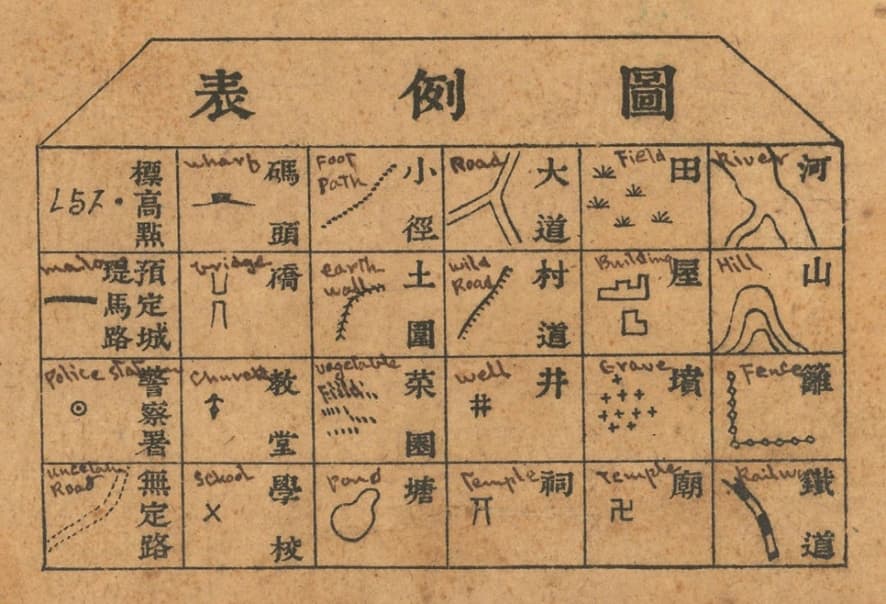 圖例表
河
River
田
Field
大道
Road
小徑
Foot
Path
碼頭
wharf
標高點
L57.
山
Hill
屋
Building
村道
wild
Road
土圍
earth
wall
橋
bridge
預定城
堤馬路
籬
Fence
墳
Grave
井
well
菜園
vegetable
Field
教堂
Church
警察署
Police station
鐵道
Railway
廟
Temple
卍
祠
Temple
塘
Pond
學校
School
無定路
uncertain
Road